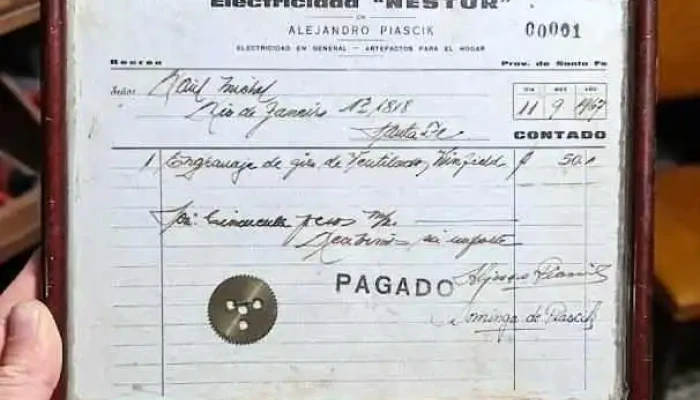 Electricidad "NESTOR"
DE
ALEJANDRO PIASCIK
00001
ELECTRICIDAD EN GENERAL — ARTEFACTOS PARA EL HOGAR
Recreo Prov. de Santa Fe
Señor Raúl Michel
Rio de Janeiro Nº 1818
Santa Fe
DIA MES AÑO
11 9 1967
CONTADO
1 Engranaje de giro de Ventilador Winfield $ 50.-
Son: Cincuenta pesos m/n.
Recibimos su importe
PAGADO
Alejandro Piascik
Dominga de Piascik